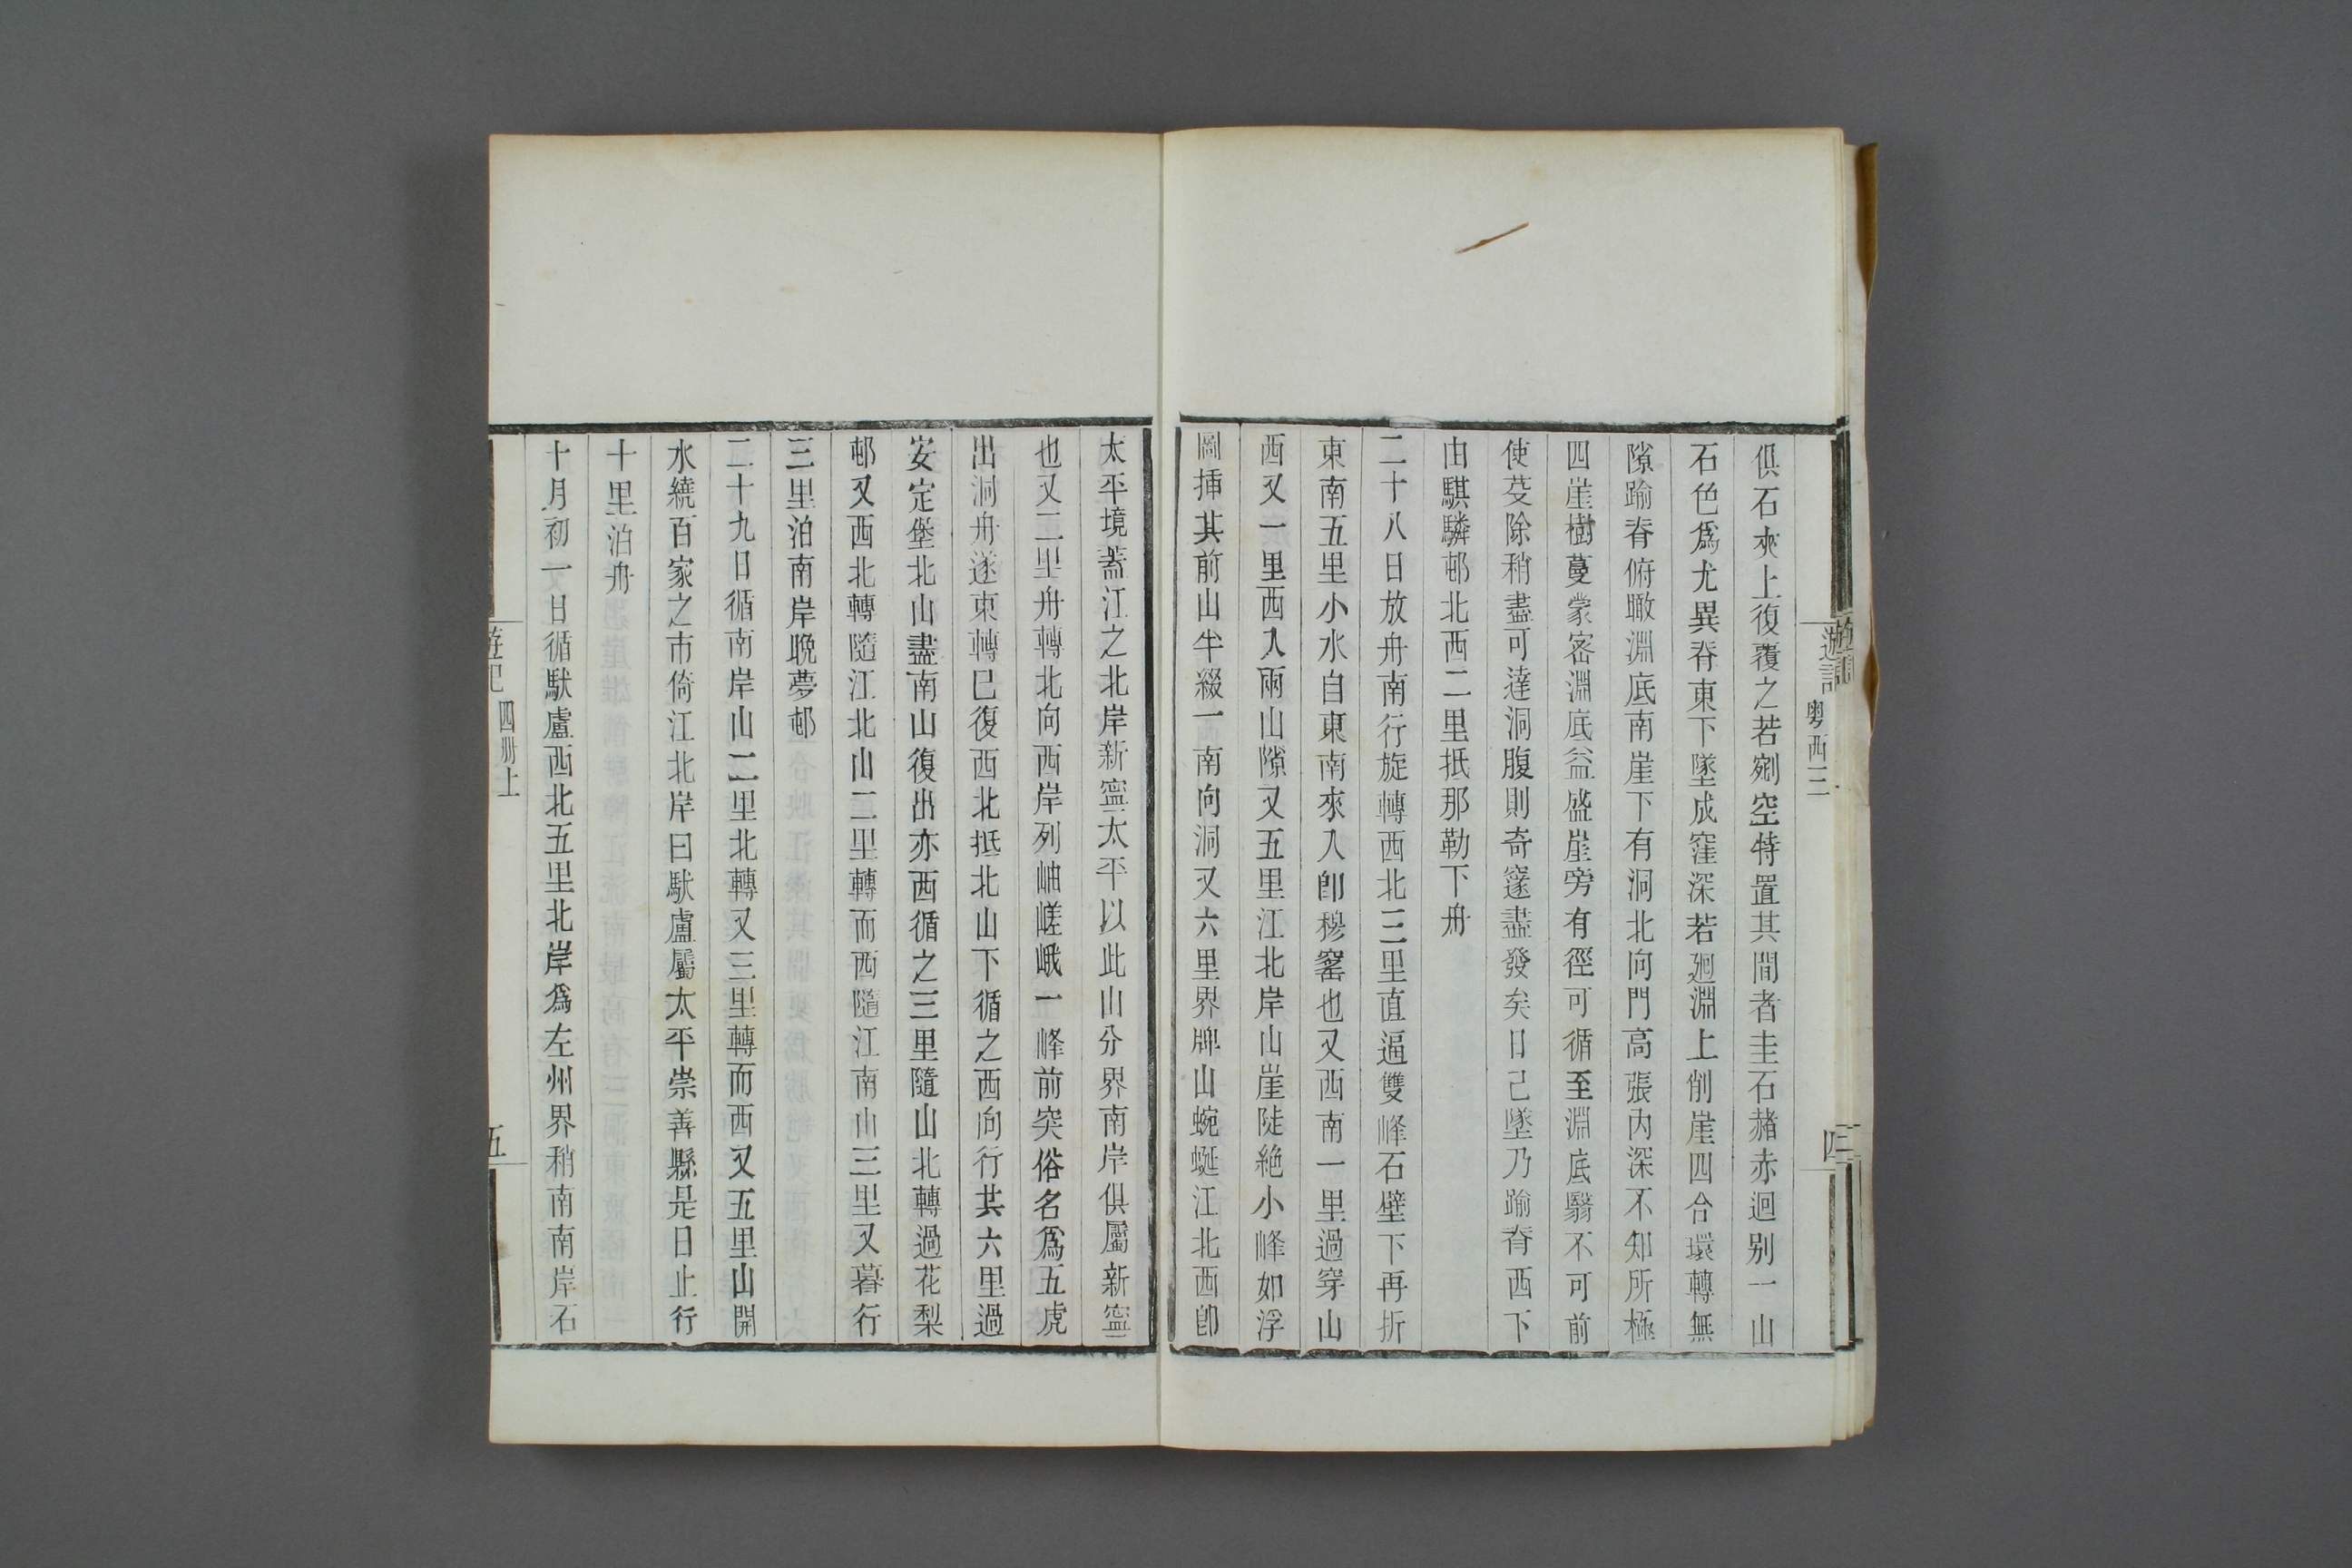 俱石夾上復覆之若剜空特置其間者圭石赭赤迴别一山
石色爲尤異脊東下墜成窪深若廻淵上削崖四合環轉無
隙踰脊俯瞰淵底南崖下有洞北向門高張内深不知所極
四崖樹蔓蒙密淵底益盛崖旁有徑可循至淵底翳不可前
使芟除稍盡可達洞腹則奇窾盡發矣日已墜乃踰脊西下
由騏驎邨北西二里抵那勒下舟
二十八日放舟南行旋轉西北三里直逼雙峰石壁下再折
東南五里小水自東南來入卽穆窰也又西南一里過穿山
西又一里西入兩山隙又五里江北岸山崖陡絶小峰如浮
圖插其前山半綴一南向洞又六里界牌山蜿蜒江北西卽
太平境蓋江之北岸新寧太平以此山分界南岸俱屬新寧
也又二里舟轉北向西岸列岫嵯峨一峰前突俗名爲五虎
出洞舟遂東轉已復西北抵北山下循之西向行共六里過
安定堡北山盡南山復出亦西循之三里隨山北轉過花梨
邨又西北轉隨江北山二里轉而西隨江南山三里又暮行
三里泊南岸晚夢邨
二十九日循南岸山二里北轉又三里轉而西又五里山開
水繞百家之市倚江北岸曰馱盧屬太平崇善縣是日止行
十里泊舟
十月初一日循馱盧西北五里北岸爲左州界稍南南岸石
遊記 四册上
五
粤西三
四